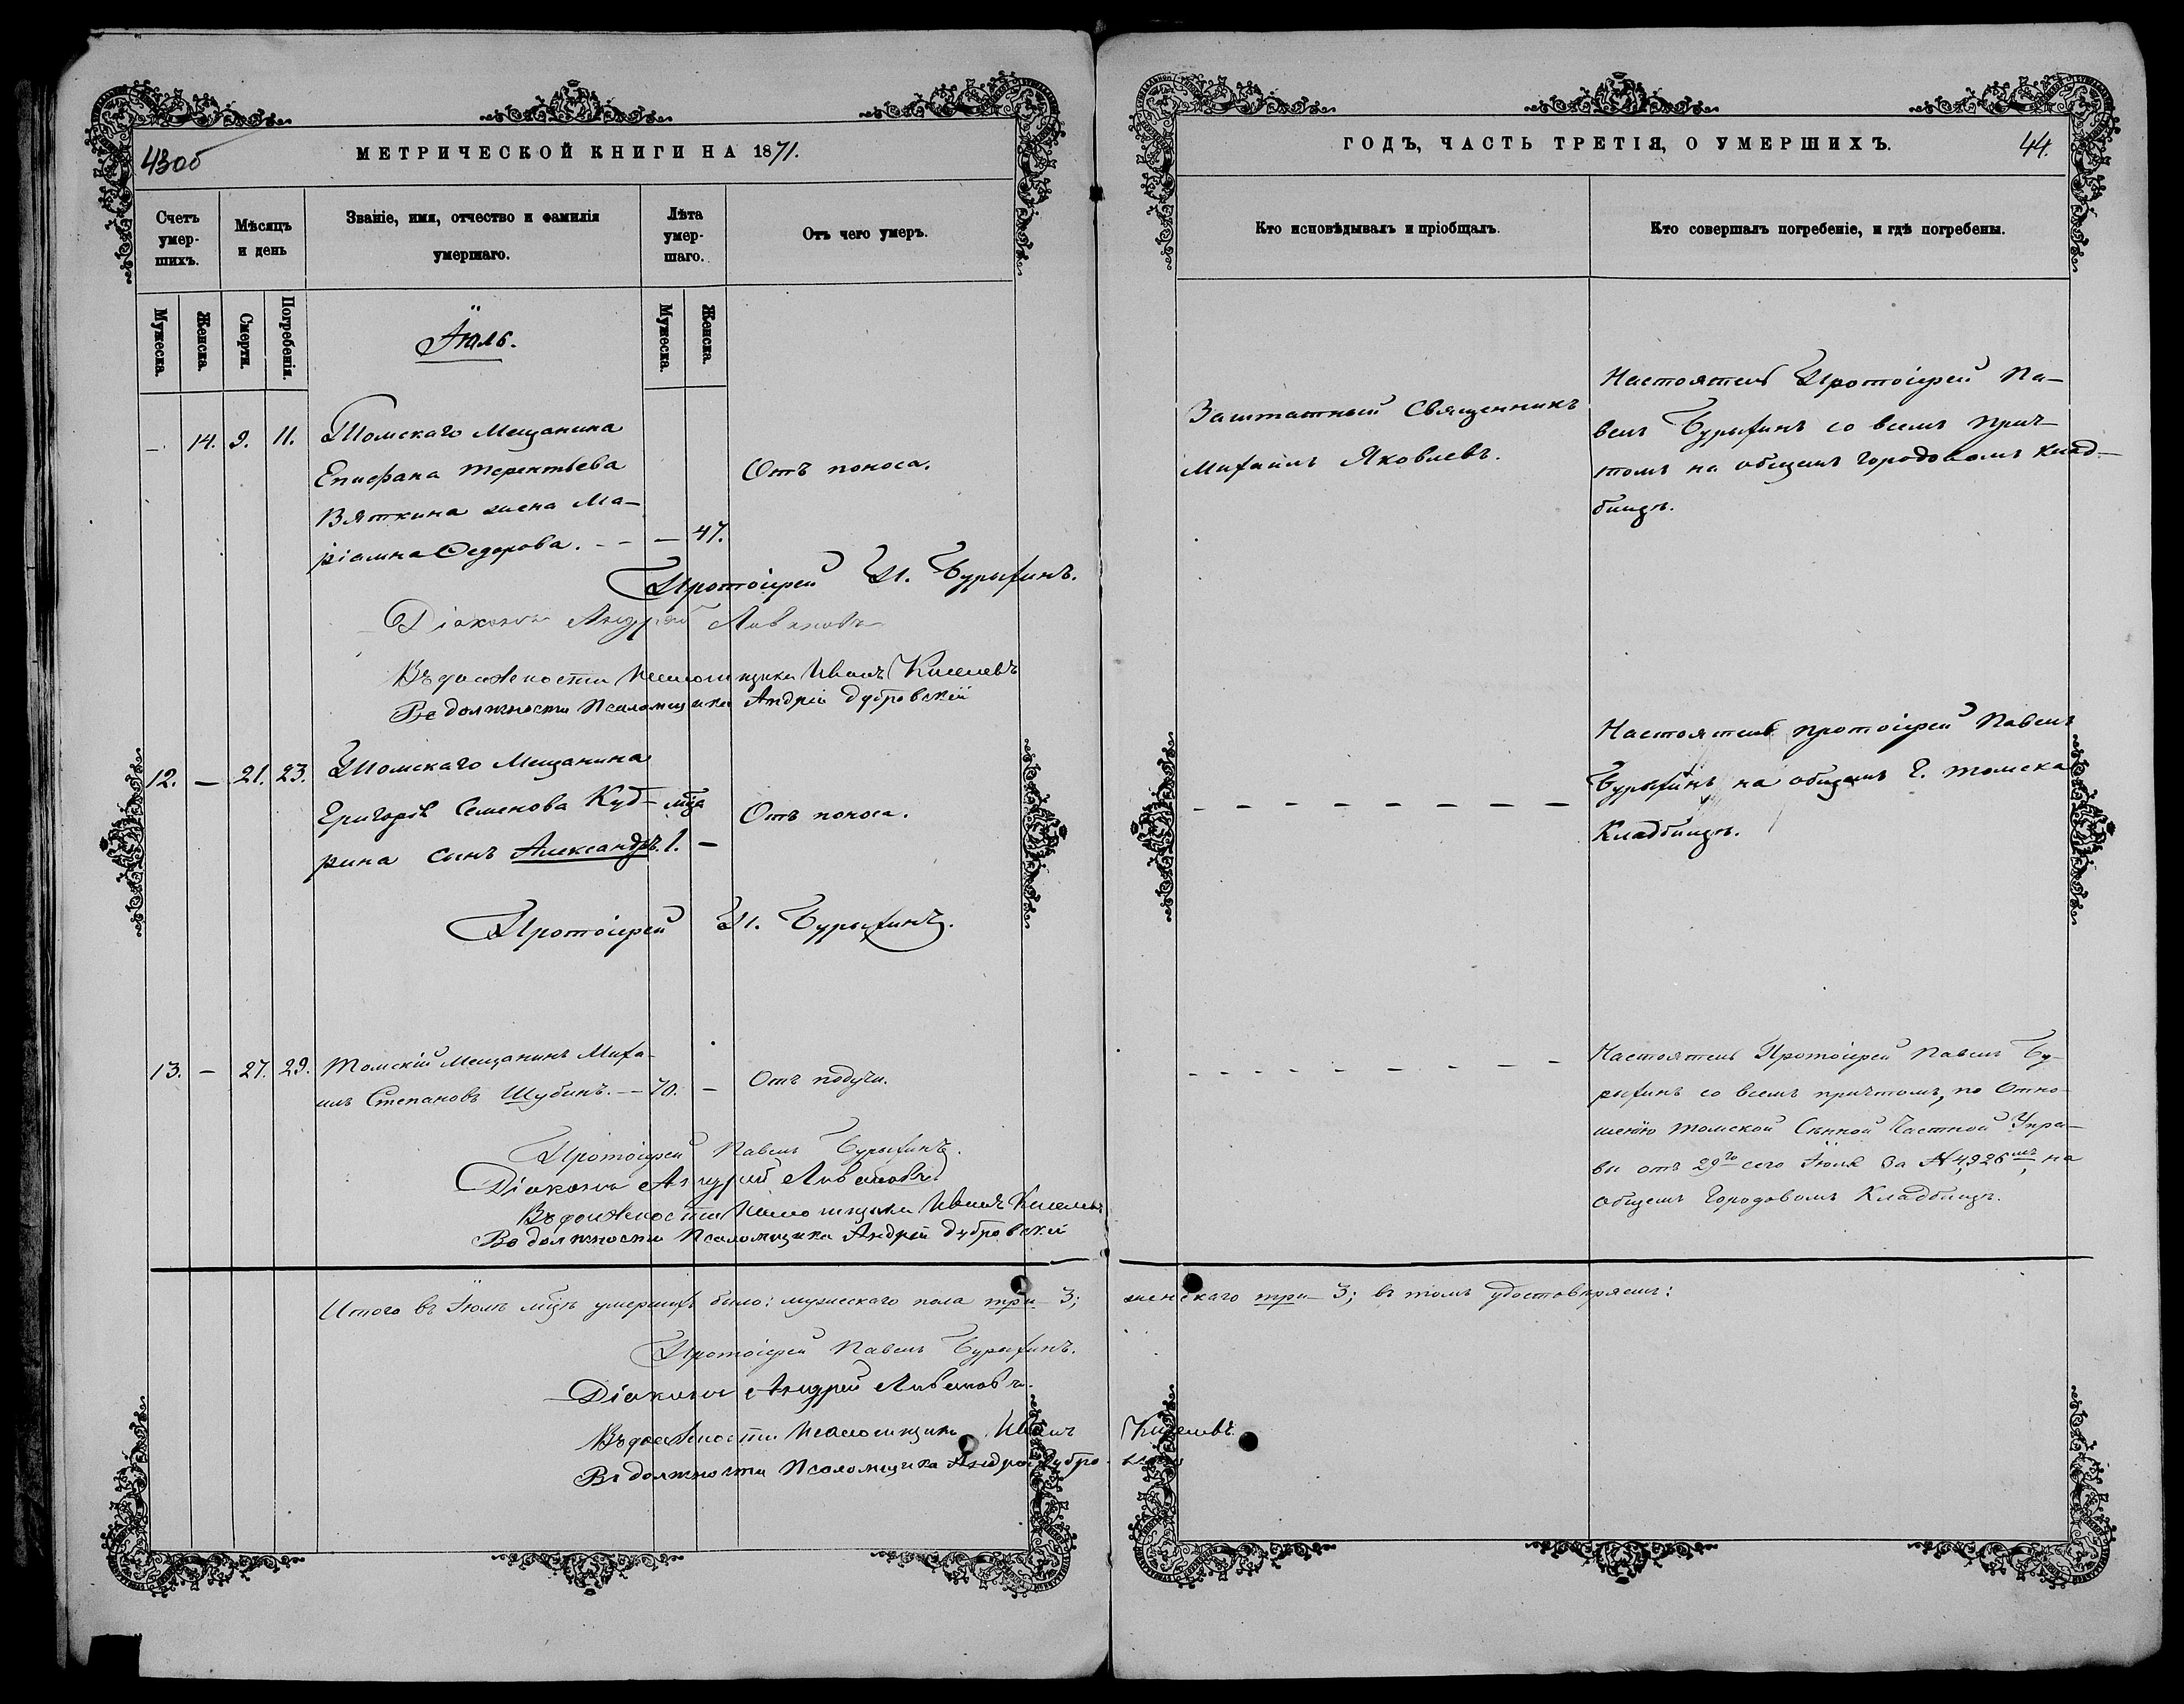 43об
МЕТРИЧЕСКОЙ КНИГИ НА 1871.
ГОДЪ, ЧАСТЬ ТРЕТІЯ, О УМЕРШИХЪ.
44.
Счетъ умер-шихъ.
Мѣсяцъ и день
Званіе, имя, отчество и фамилія умершаго.
Лѣта умер-шаго.
Отъ чего умеръ.
Кто исповѣдывалъ и пріобщалъ.
Кто совершалъ погребеніе, и гдѣ погребены.
Мужеска.
Женска.
Смерти.
Погребенія.
Мужеска.
Женска.
Іюль.
— 14. 9. 11. Томскаго Мещанина
Епифана Терентьева
Вяткина жена Ма-
ріамна Федорова. - - — 47.
Отъ поноса.
Заштатный Священникъ
Михаилъ Яковлевъ.
Настоятель Протоіерей Па-
велъ Бурыхинъ со всемъ прич-
томъ на общемъ городовомъ клад-
бищѣ.
Протоіерей П. Бурыхинъ.
Діаконъ Андрей Ливановъ
Въ должности Псаломщика Иванъ Киселевъ
Въ должности Псаломщика Андрей Дубровскій
12. — 21. 23. Томскаго Мещанина
Григорія Семенова Куд-
рина сынъ Александръ. 1. —
мца
Отъ поноса.
— — — — — — — —
Настоятель протоіерей Павелъ
Бурыхинъ на общемъ г. Томска
Кладбищѣ.
Протоіерей П. Бурыхинъ.
13. — 27. 29. Томскій Мещанинъ Миха-
илъ Степановъ Шубинъ. — 70. —
Отъ падучи.
- - - - - - - - —
Настоятель Протоіерей Павелъ Бу-
рыхинъ со всемъ причтомъ, по Отно-
шенію Томской Сѣнной Частной Упра-
вы отъ 29го сего Іюля за № 4,926мъ, на
общемъ Городовомъ Кладбищѣ.
Протоіерей Павелъ Бурыхинъ.
Діаконъ Андрей Ливановъ
Въ должности Псаломщика Иванъ Киселевъ
Въ должности Псаломщика Андрей Дубровскій
Итого въ Іюлѣ мцѣ умершихъ было: мужескаго пола три 3; женскаго три 3; въ томъ удостовѣряемъ:
Протоіерей Павелъ Бурыхинъ.
Діаконъ Андрей Ливановъ.
Въ должности Псаломщика Иванъ Киселевъ.
Въ должности Псаломщика Андрей Дубро